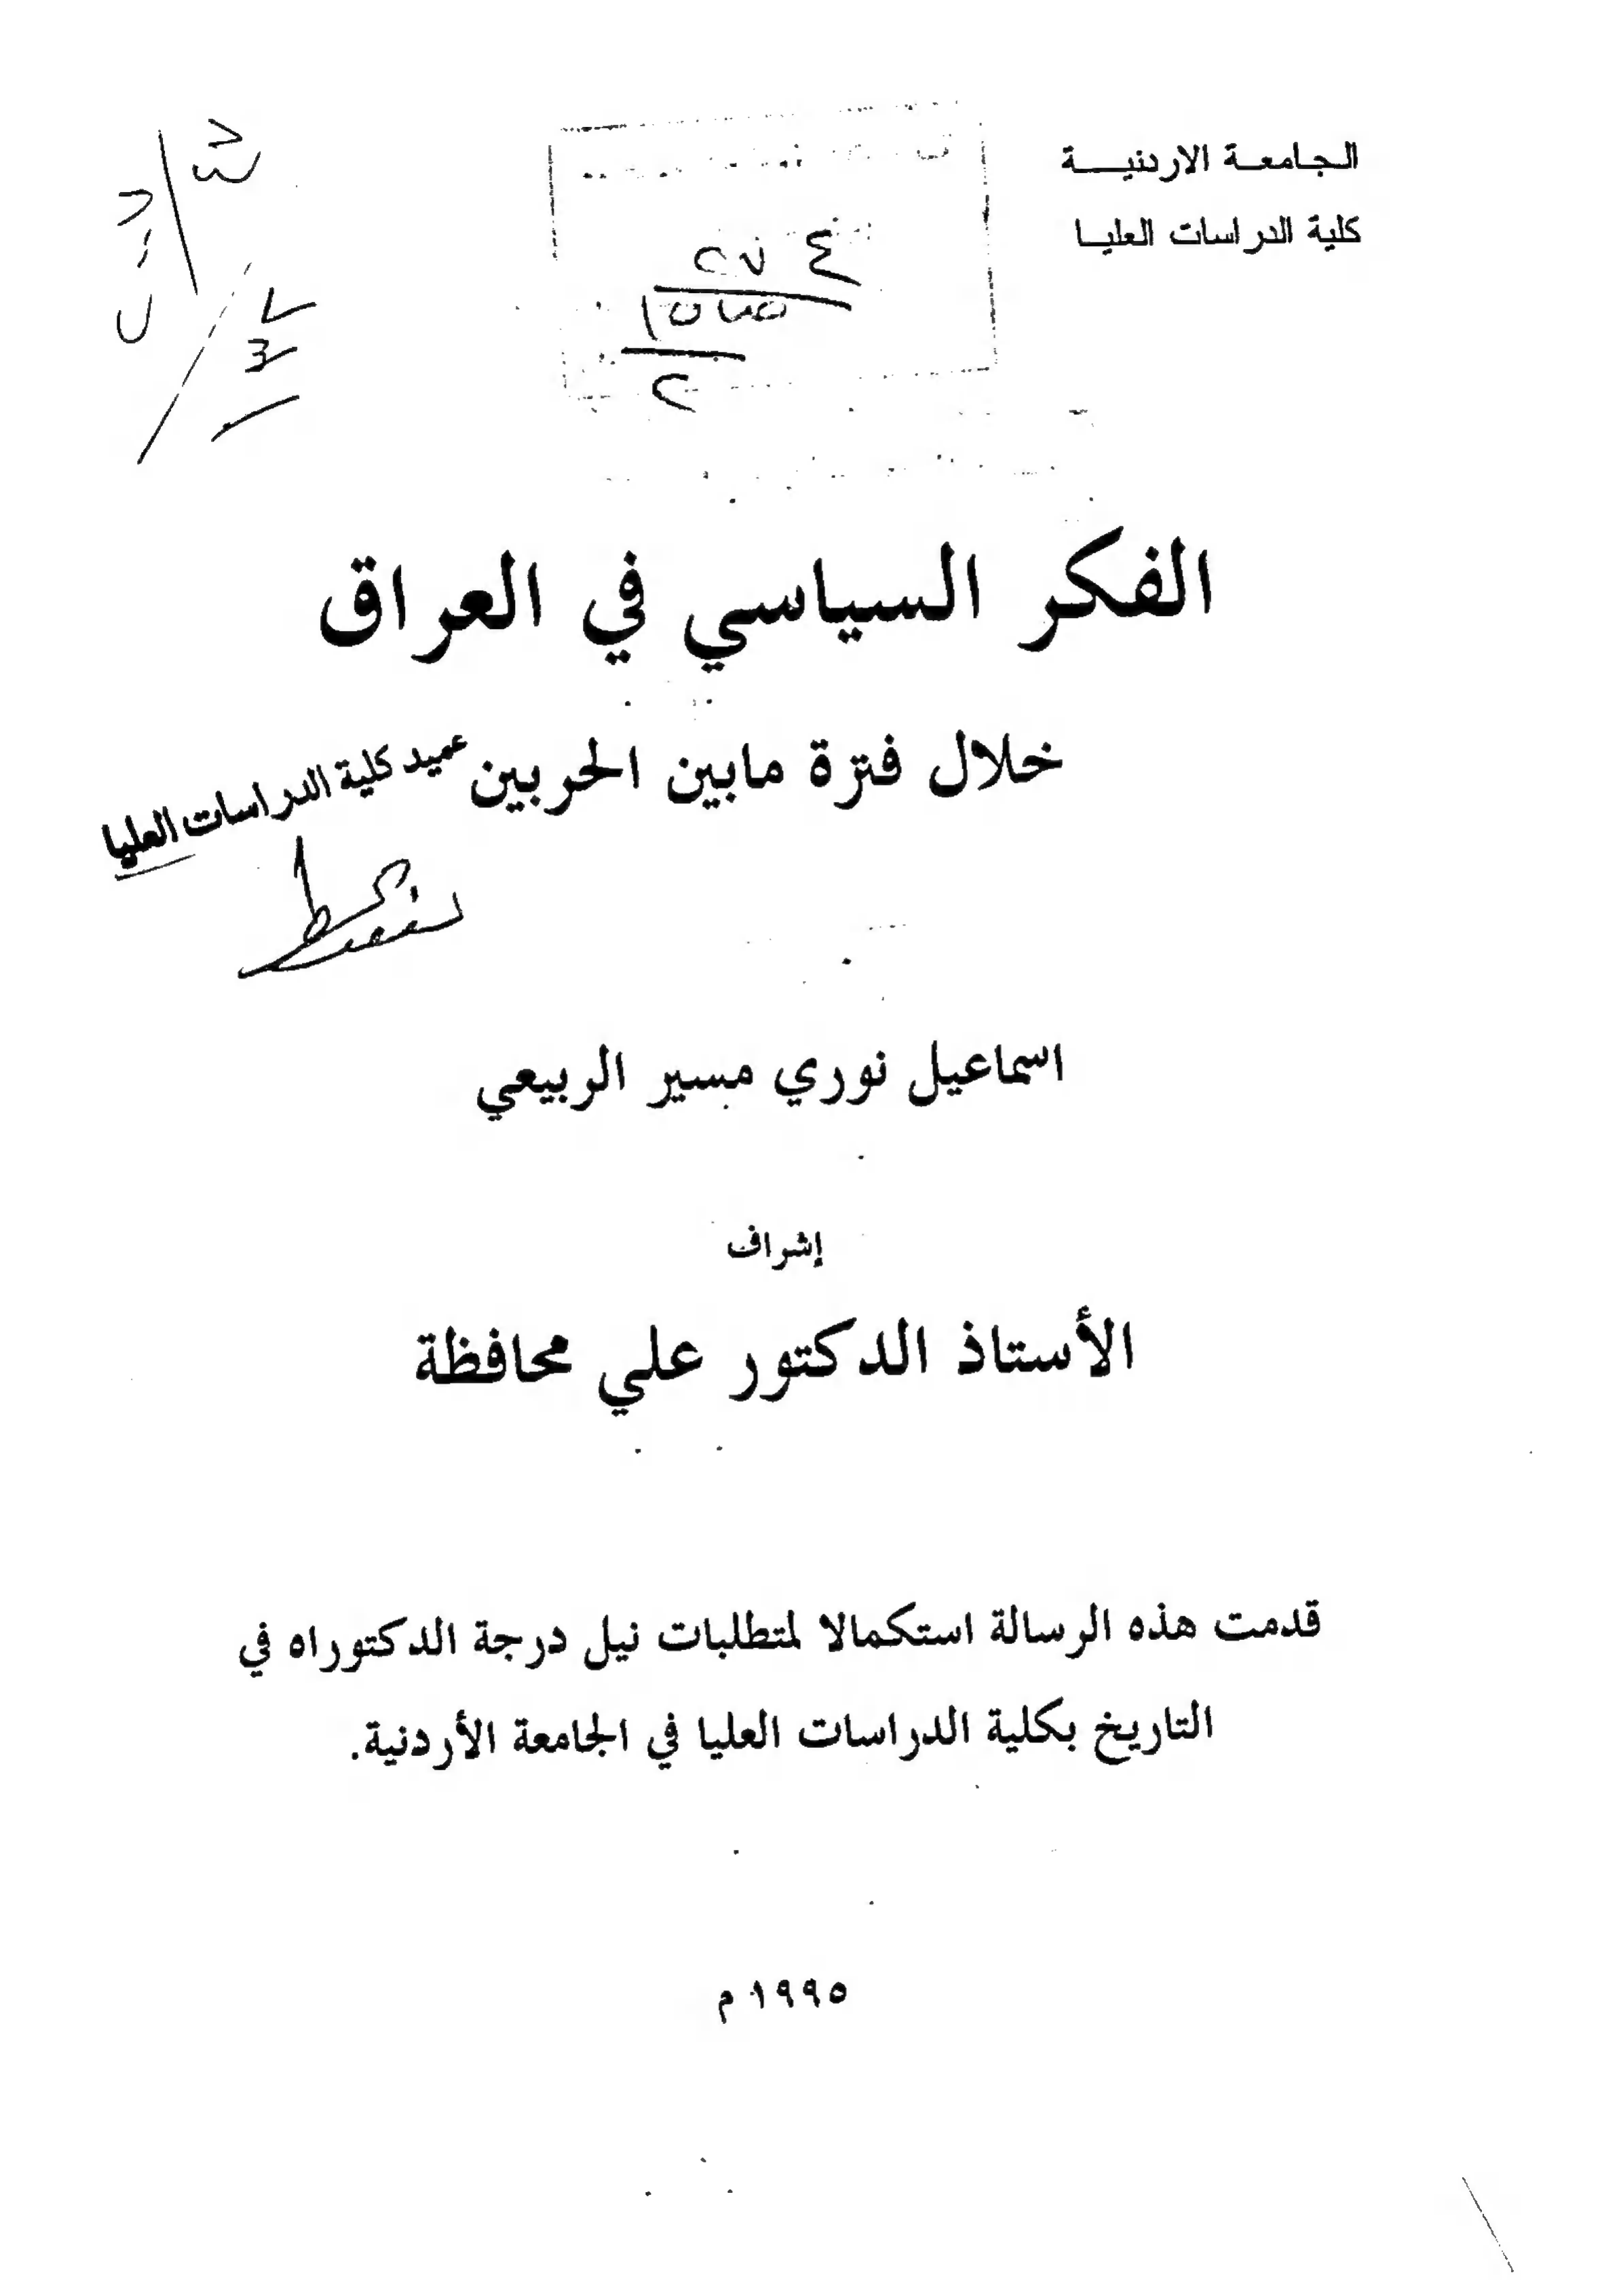 الجامعة الاردنية
كلية الدراسات العليا
الفكر السياسي في العراق
خلال فترة مابين الحربين
عميد كلية الدراسات العليا
اسماعيل نوري مسير الربيعي
إشراف
الأستاذ الدكتور علي محافظة
قدمت هذه الرسالة استكمالا لمتطلبات نيل درجة الدكتوراه في
التاريخ بكلية الدراسات العليا في الجامعة الأردنية.
١٩٩٥ م